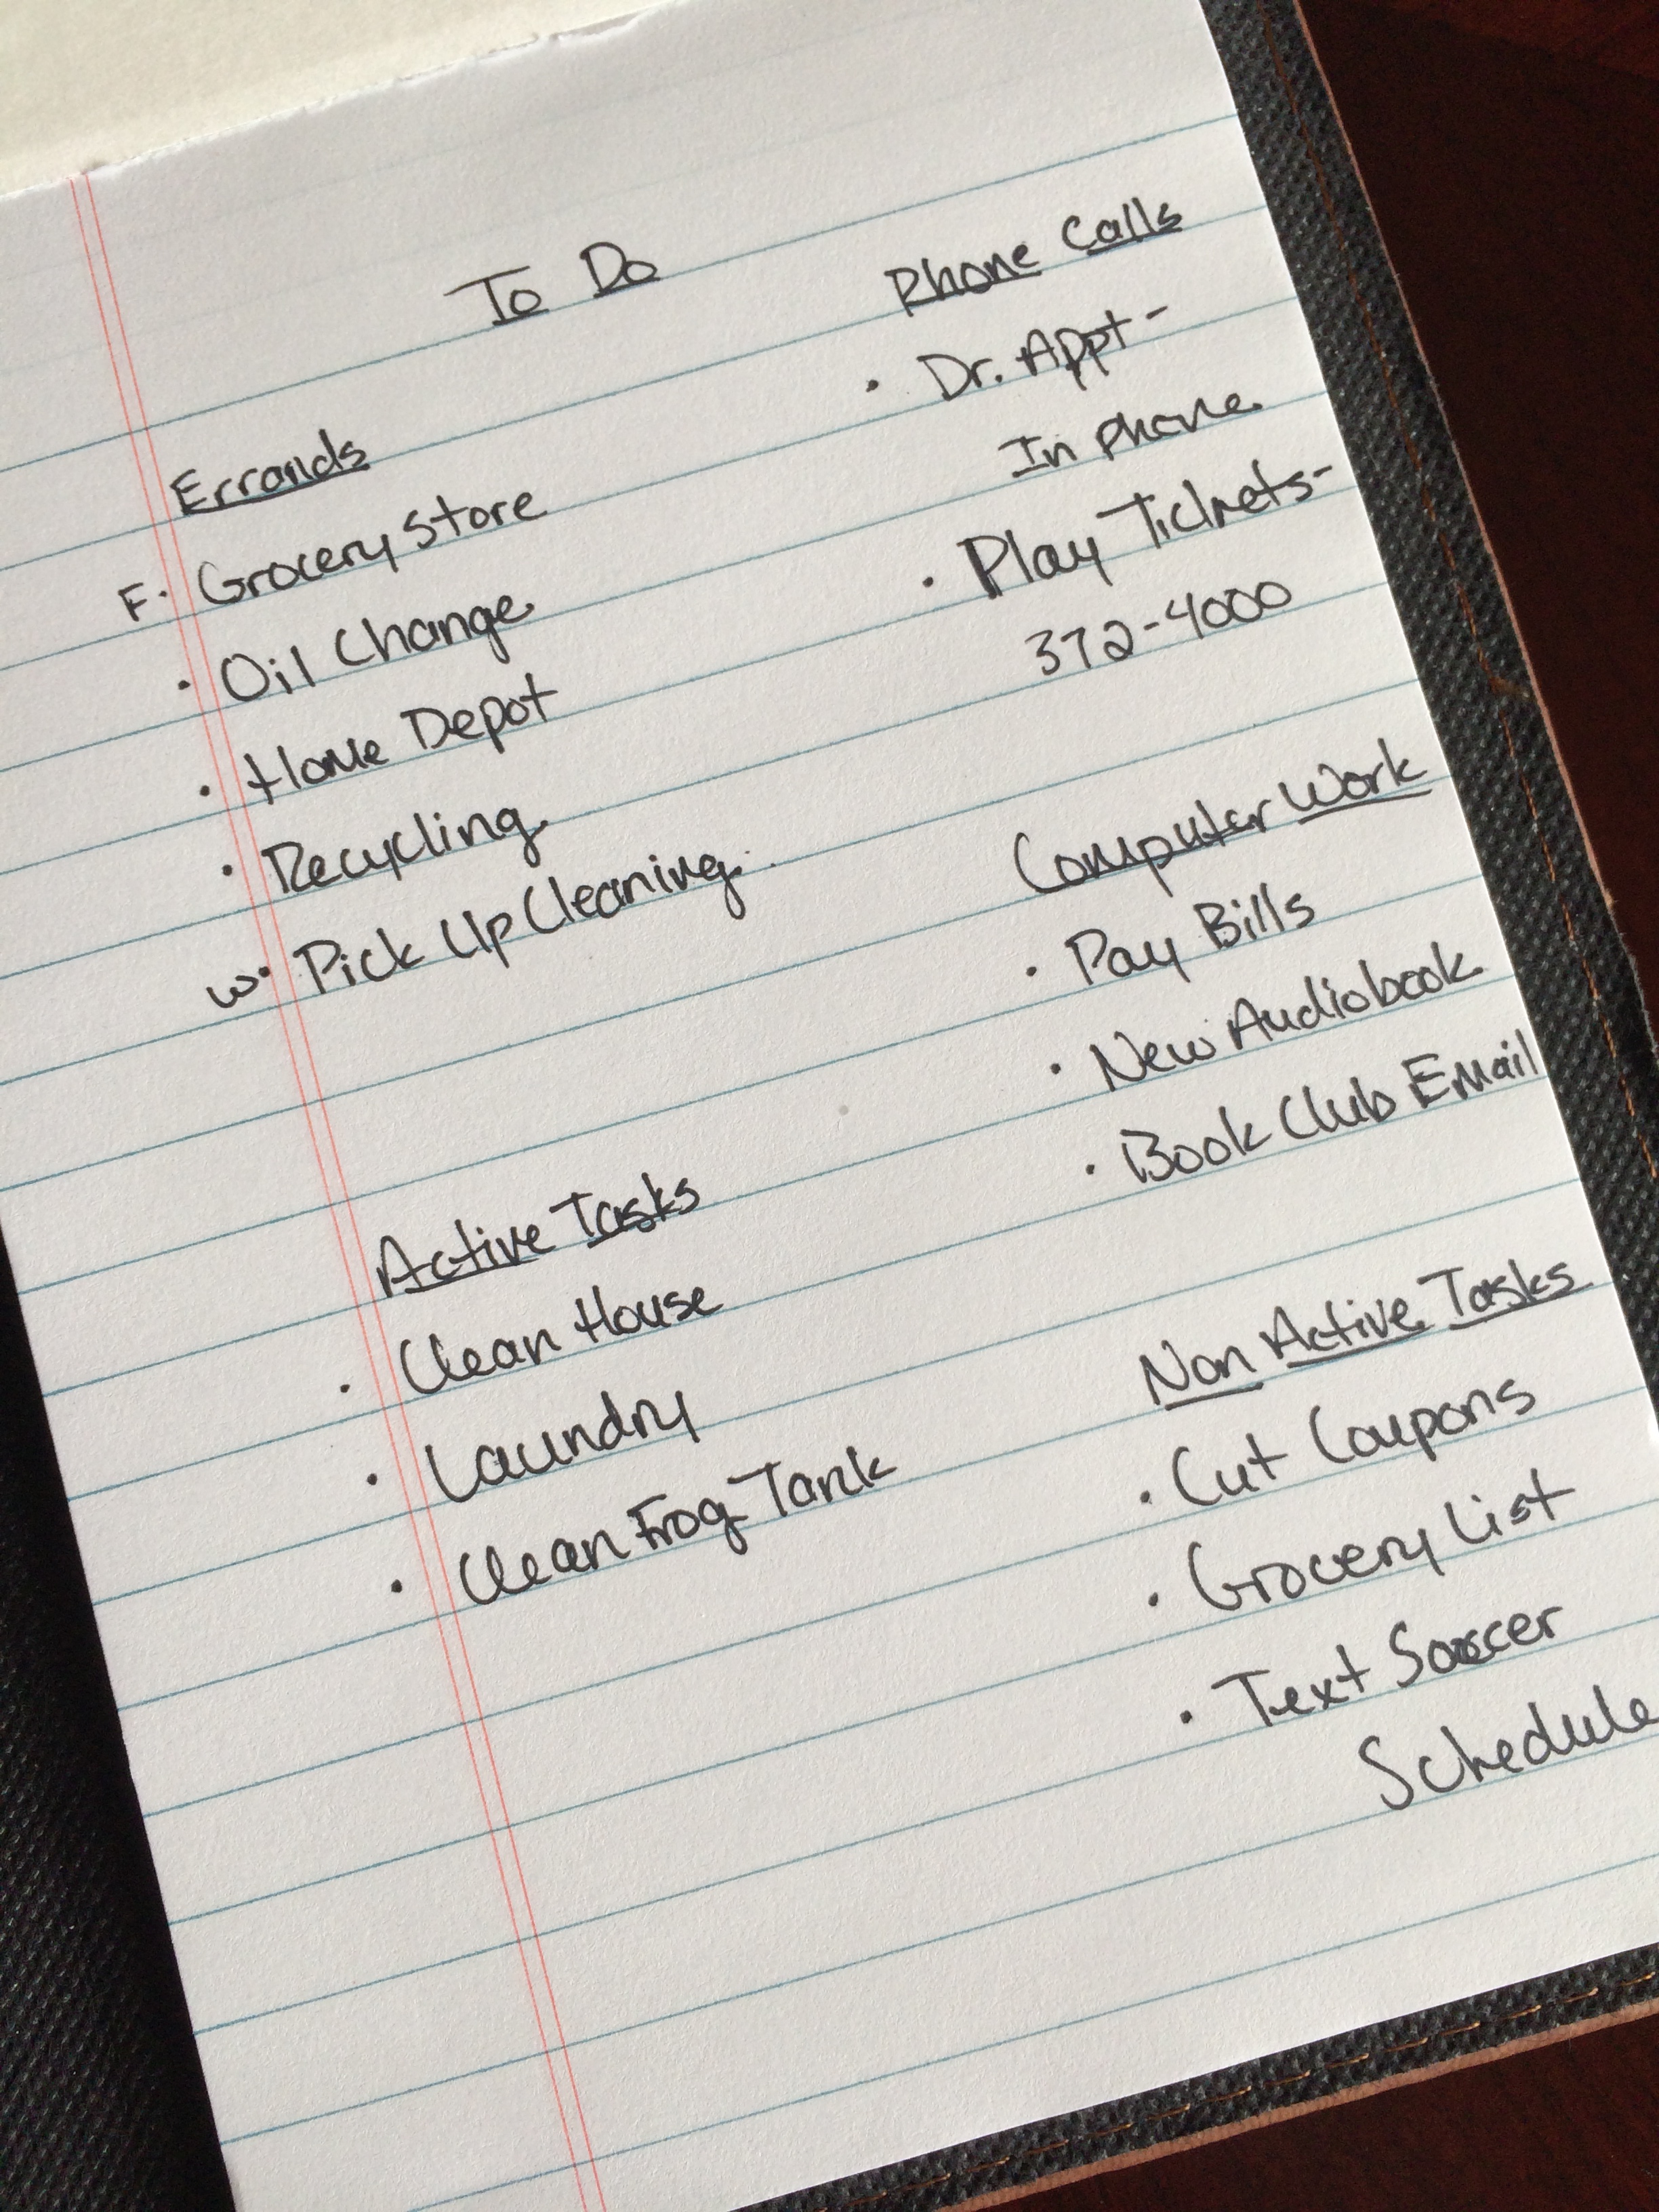 To Do
Errands
F. Grocery Store
• Oil Change
• Home Depot
• Recycling
W• Pick Up Cleaning
Active Tasks
• Clean House
• Laundry
• Clean Frog Tank
Phone Calls
• Dr. Appt-
In phone
• Play Tickets-
372-4000
Computer Work
• Pay Bills
• New Audiobook
• Book Club Email
Non Active Tasks
• Cut Coupons
• Grocery List
• Text Soccer
Schedule